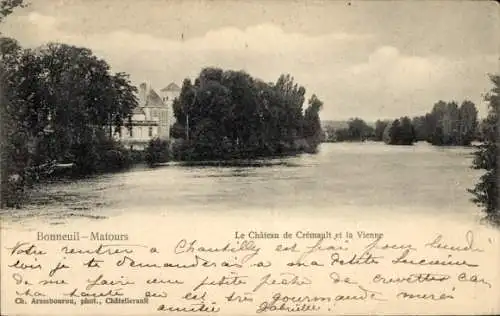 Bonneuil-Matours
Le Château de Crémault et la Vienne
Votre rentrer à Chantilly est pour lundi
je te demanderai à ma petite Lucienne
de me faire une petite pêche de crevettes car
la haute est très gourmande
amitié Gabrielle
Ch. Arambourou, phot., Châtellerault